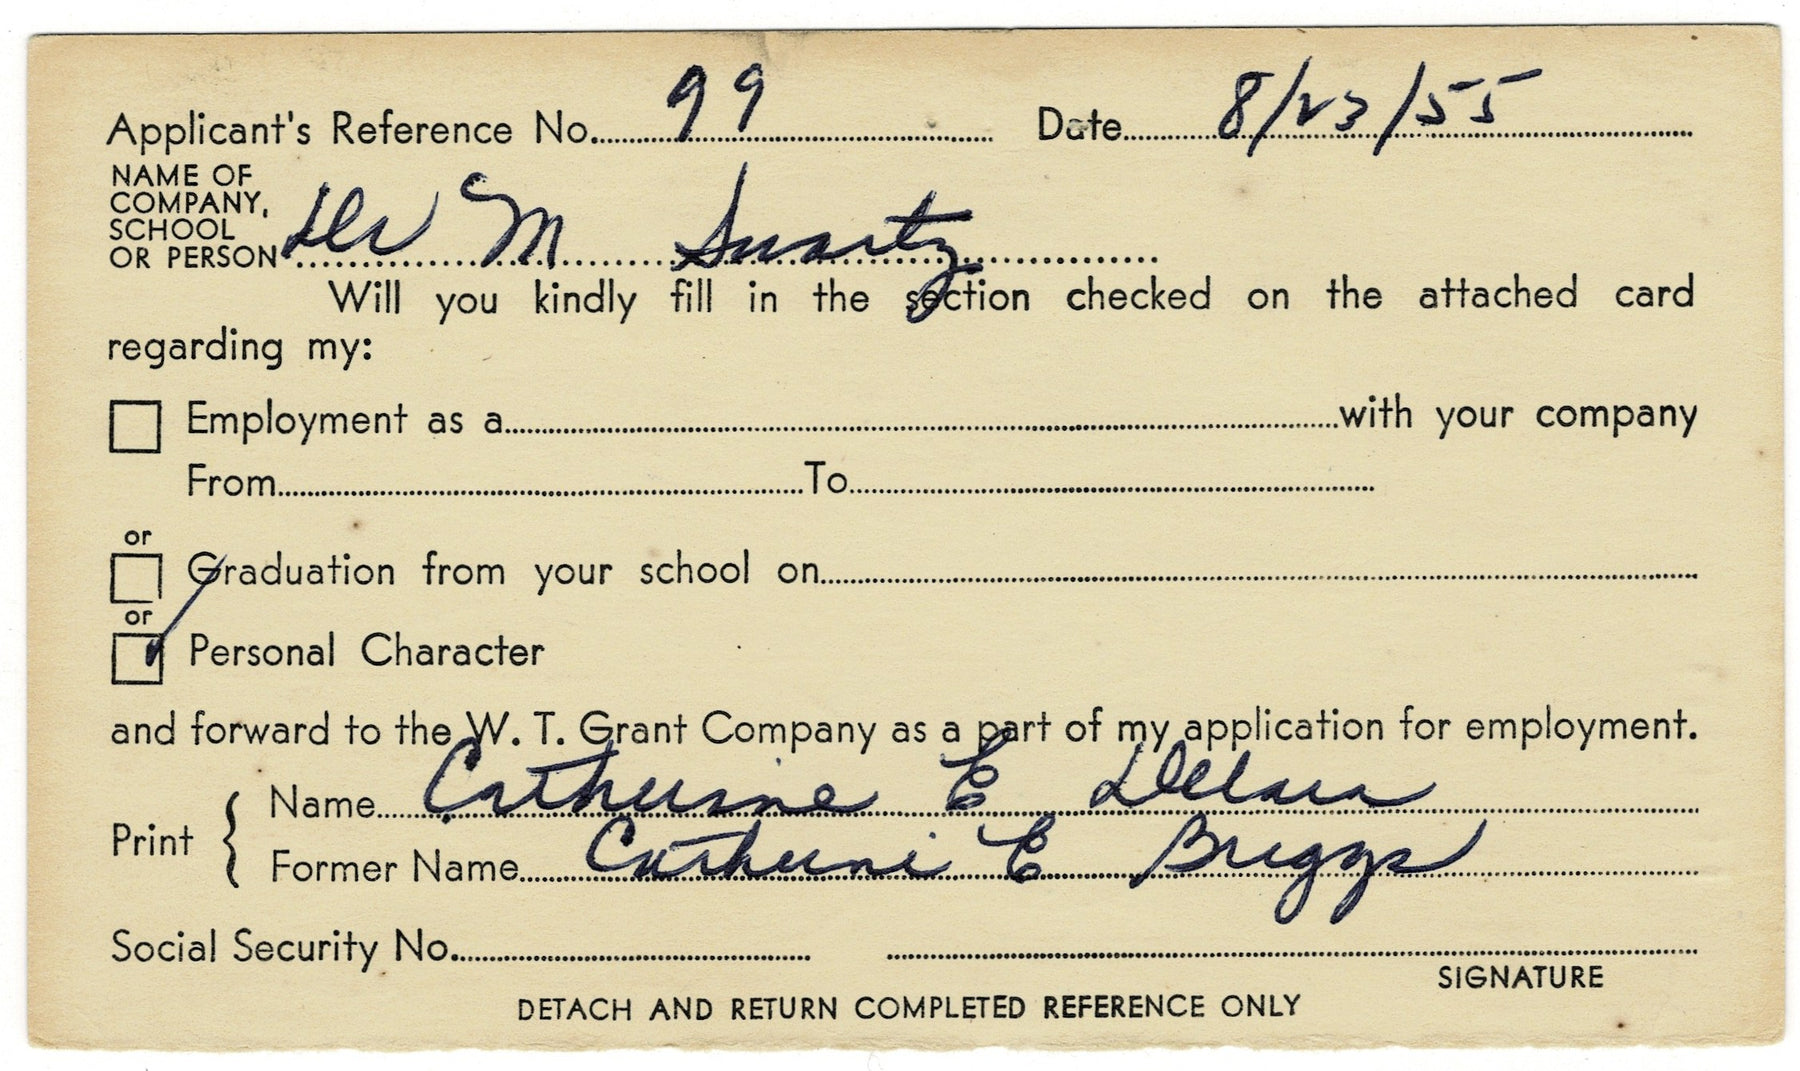 Applicant's Reference No. 99 Date 8/23/55
NAME OF
COMPANY,
SCHOOL
OR PERSON Dr M Swartz
Will you kindly fill in the section checked on the attached card
regarding my:
Employment as a with your company
From To
or
Graduation from your school on
or
Personal Character
and forward to the W. T. Grant Company as a part of my application for employment.
Print
Name Catherine E
Former Name Catherine E Briggs
Social Security No.
SIGNATURE
DETACH AND RETURN COMPLETED REFERENCE ONLY